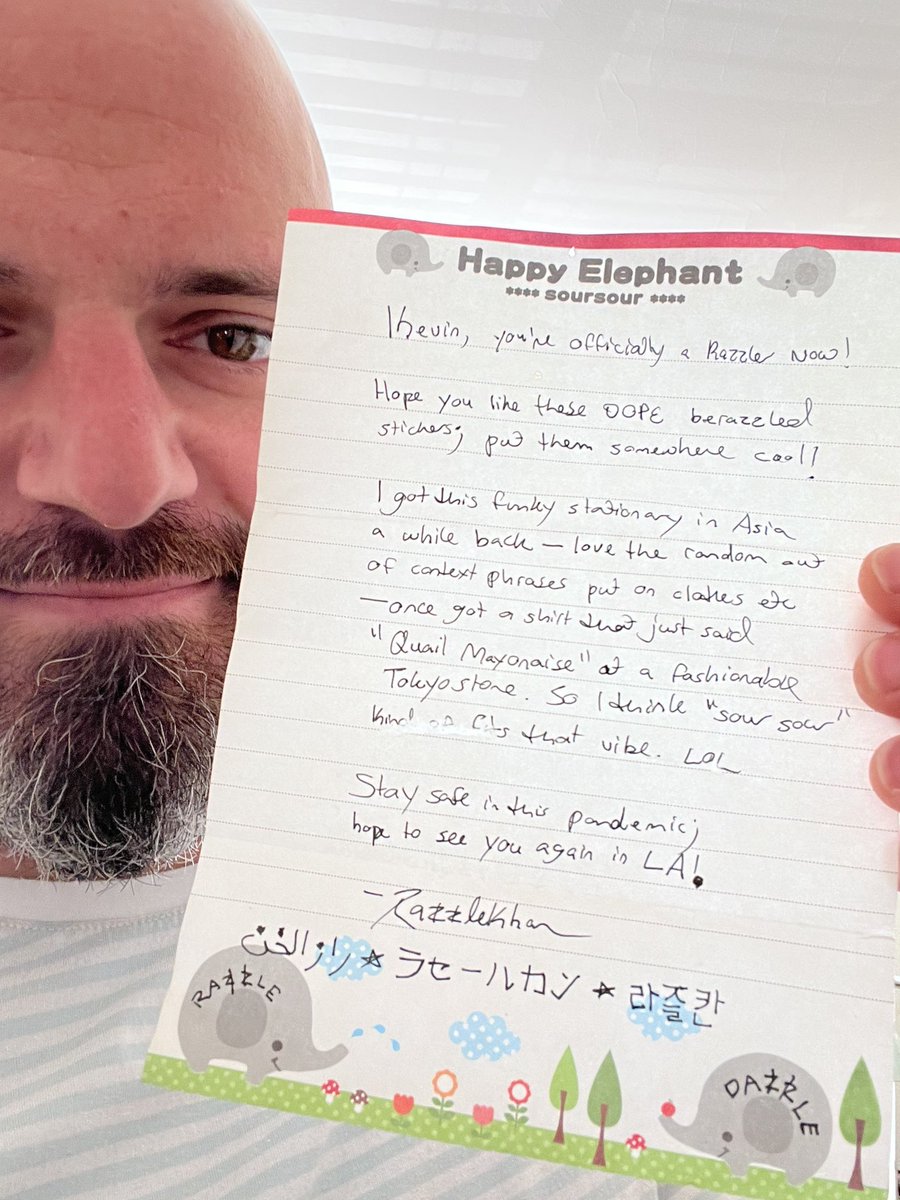 Happy Elephant
**** soursour ****
Kevin, you're officially a Razzler Now!
Hope you like these DOPE berazzled
stickers; put them somewhere cool!
I got this funky stationary in Asia
a while back — love the random out
of context phrases put on clothes etc
— once got a shirt that just said
"Quail Mayonaise" at a fashionable
Tokyo store. So I think "sour sour"
kind of fits that vibe. LOL
Stay safe in this pandemic;
hope to see you again in LA!
- RazzleKhan
رازالخن ☆ ラセールカン ☆ 라즐칸
RAZZLE
DAZZLE